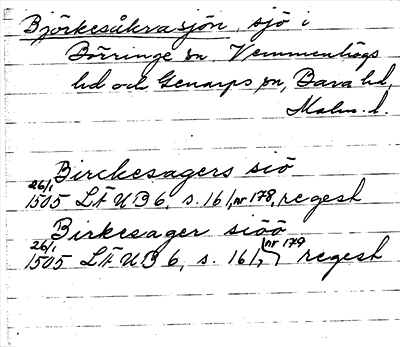 Björkesåkrasjön, sjö i
Börringe sn, Vemmenhögs
hd och Genarps sn, Bara hd,
Malm. l.
Birckesagers siö
26/1 1505 LÄUB 6, s. 161, nr 178, regest
Birkesager siöö
26/1 1505 LÄUB 6, s. 161, nr 179 regest